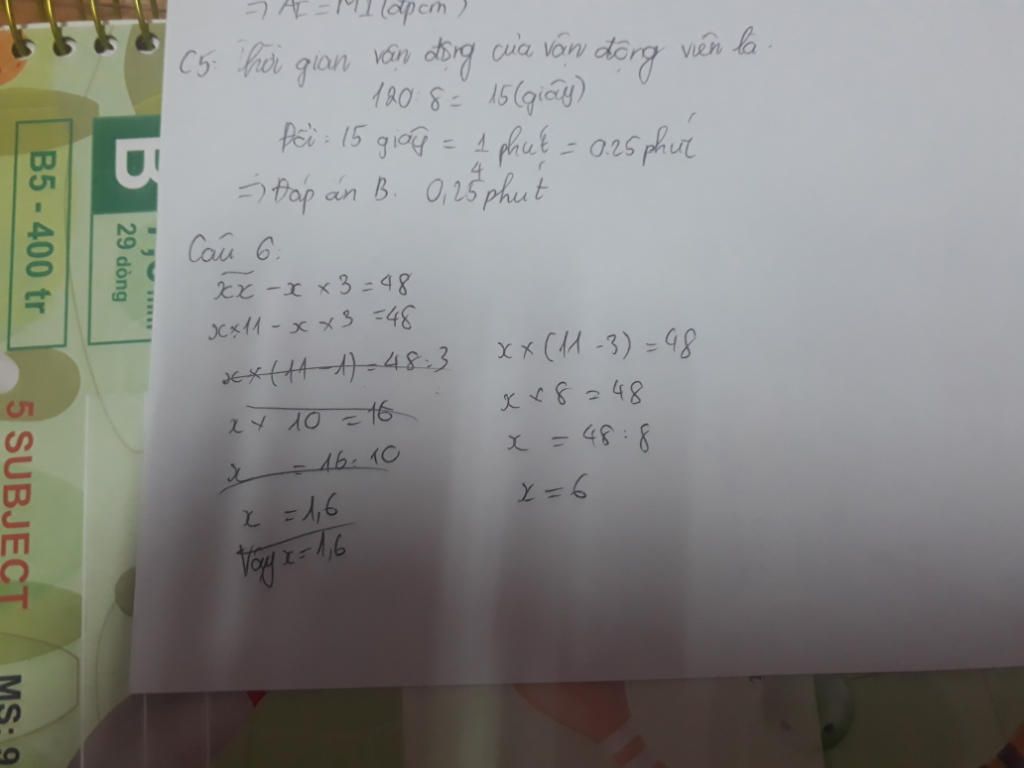 => AI = MI (đpcm)
C5: Thời gian vận động của vận động viên là.
120 : 8 = 15 (giây)
Đổi: 15 giây = 1/4 phút = 0.25 phút
=> Đáp án B. 0,25 phút
Câu 6:
xx - x × 3 = 48
x × 11 - x × 3 = 48
x × (11 - 1) = 48 : 3
x × 10 = 16
x = 16 : 10
x = 1,6
Vậy x = 1,6
x × (11 - 3) = 48
x × 8 = 48
x = 48 : 8
x = 6
B5 - 400 tr
B
29 dòng
5 SUBJECT
MS: 9